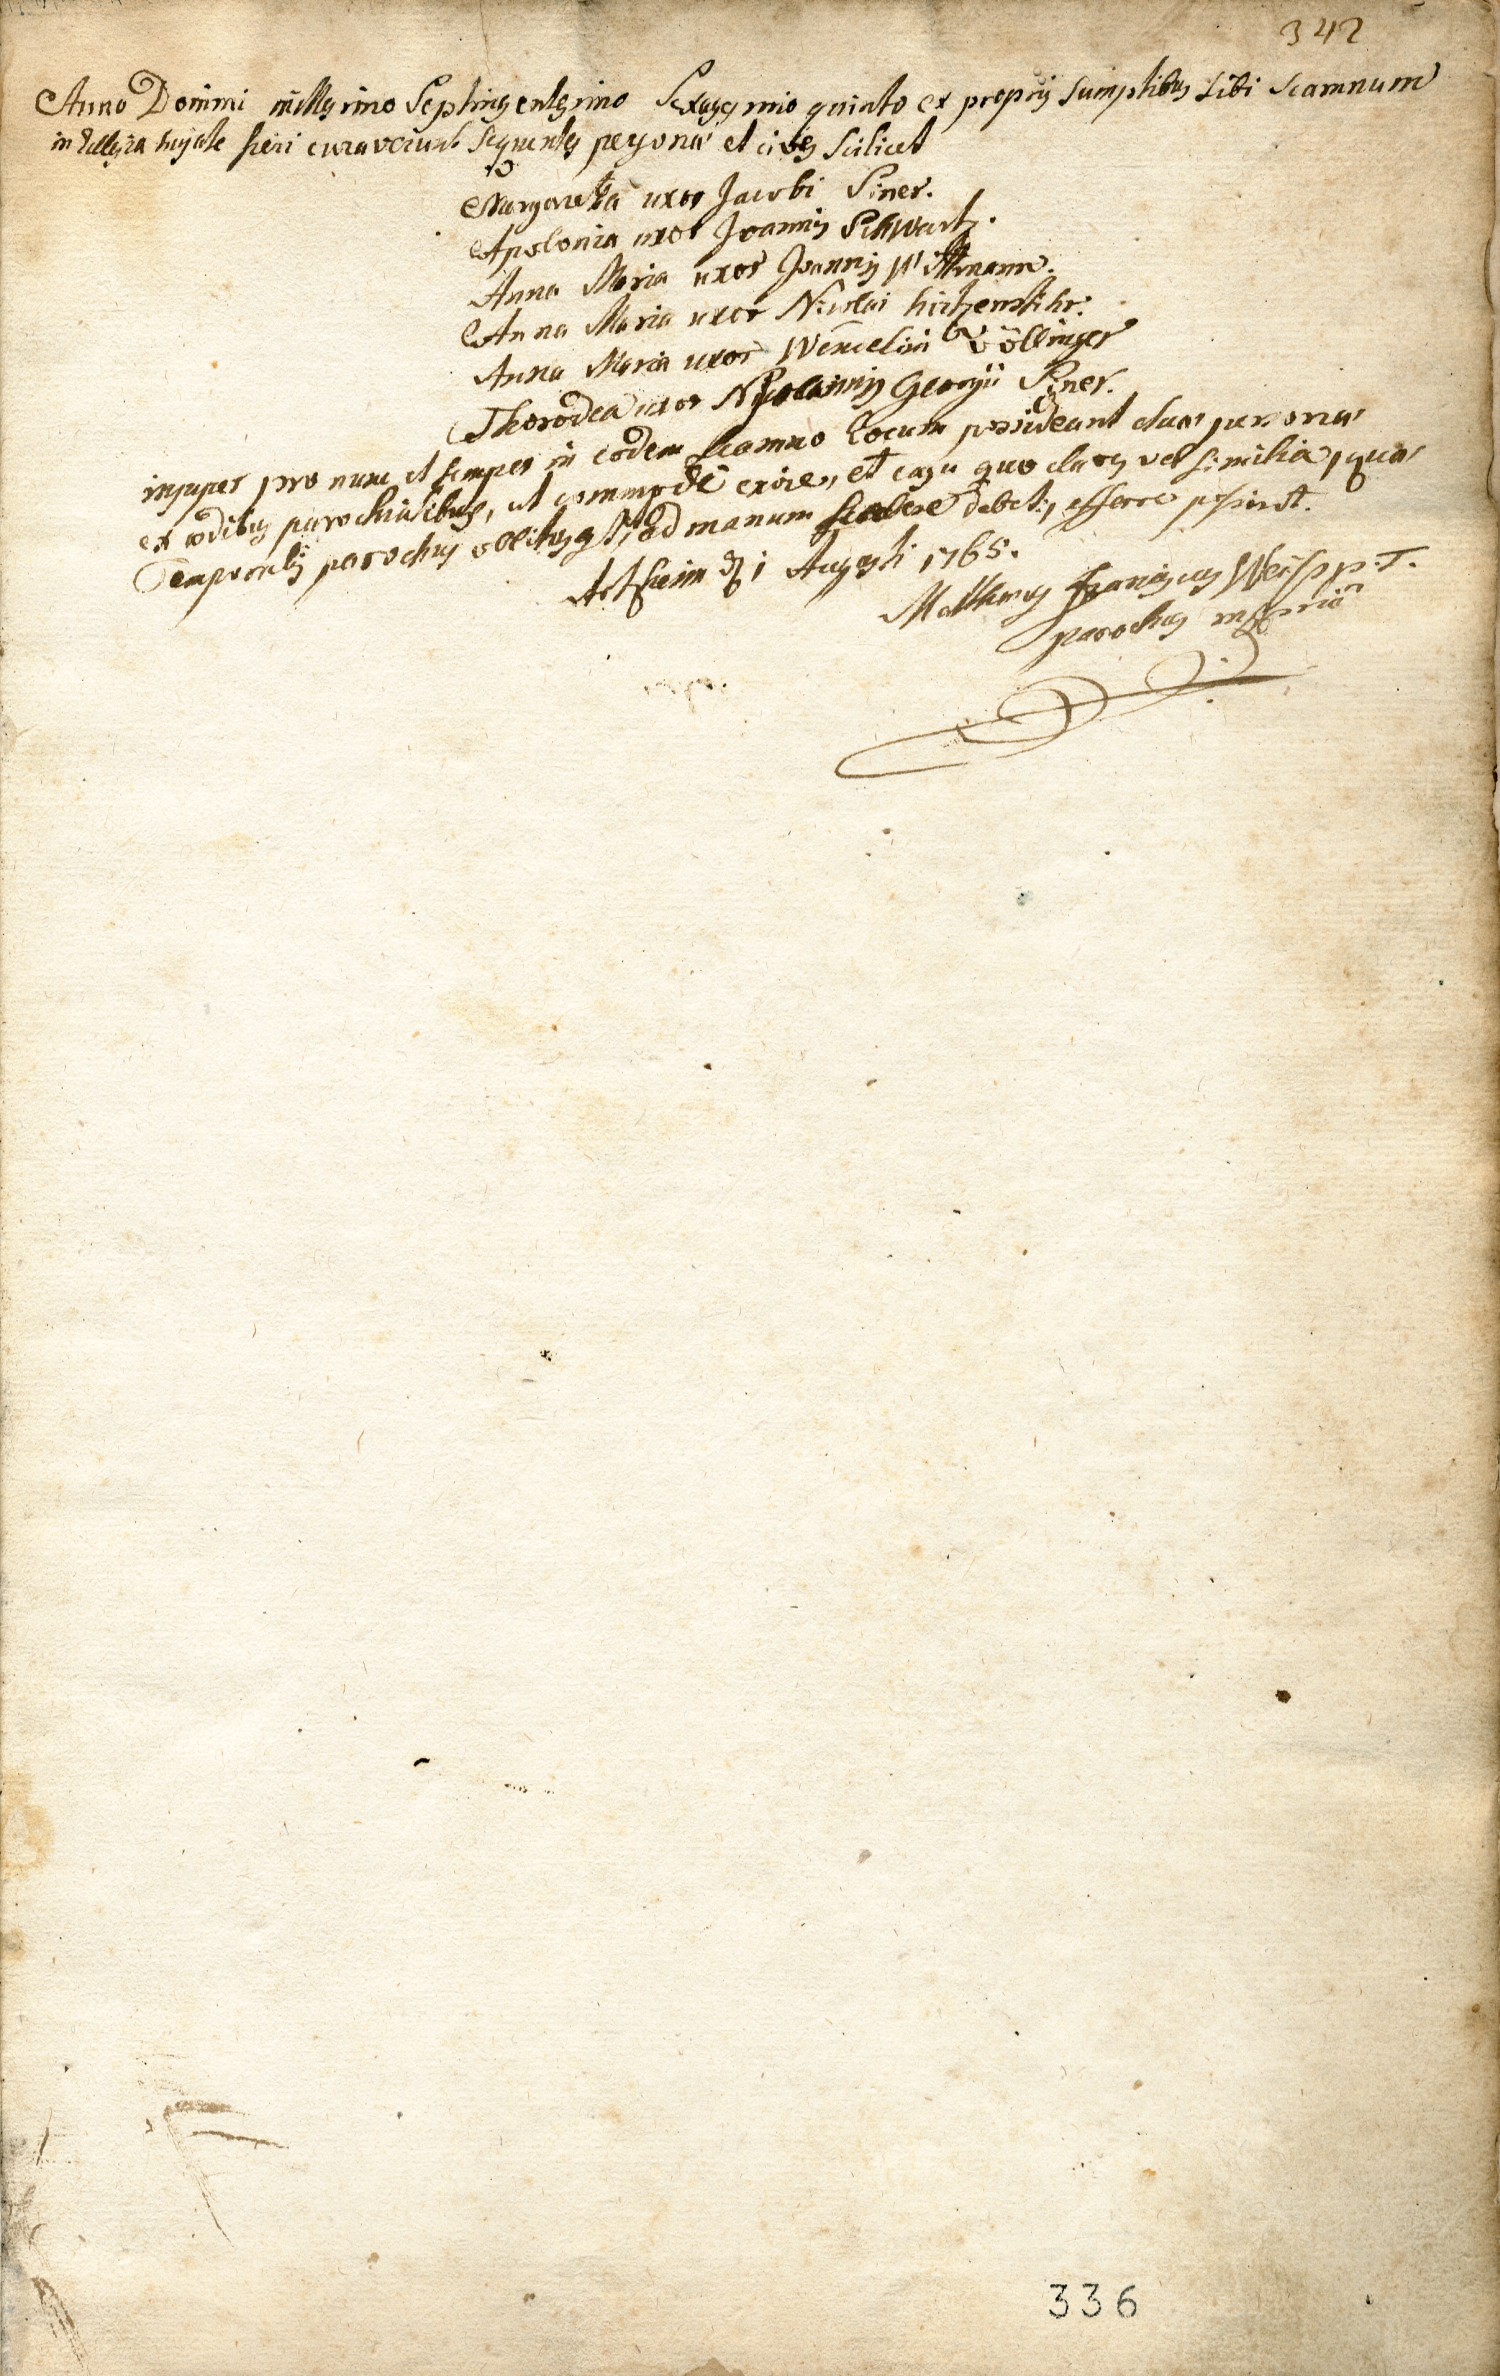 342
Anno Domini millesimo Septingentesimo Sexagesimo quinto ex propriis sumptibus sibi scamnum
in Ecclesia hujate fieri curaverunt sequentes personae et cives scilicet
Margaretha uxor Jacobi Siner.
Apolonia uxor Joannis Schwartz.
Anna Maria uxor Joannis Wittmann.
Anna Maria uxor Nicolai
Anna Maria uxor Wencelini Böllinger
Thorodea uxor Georgii Siner.
insuper pro nunc et semper in eodem scamno Locum possideant duas personas
ex aedibus parochialibus, ut commode exire, et casu quo claves vel similia, quas
Temporalis parochus oblitus est, ad manum habere debet, efferre possint.
1 Augusti 1765.
Mathaeus Franciscus Weis p.t.
parochus mpria
336